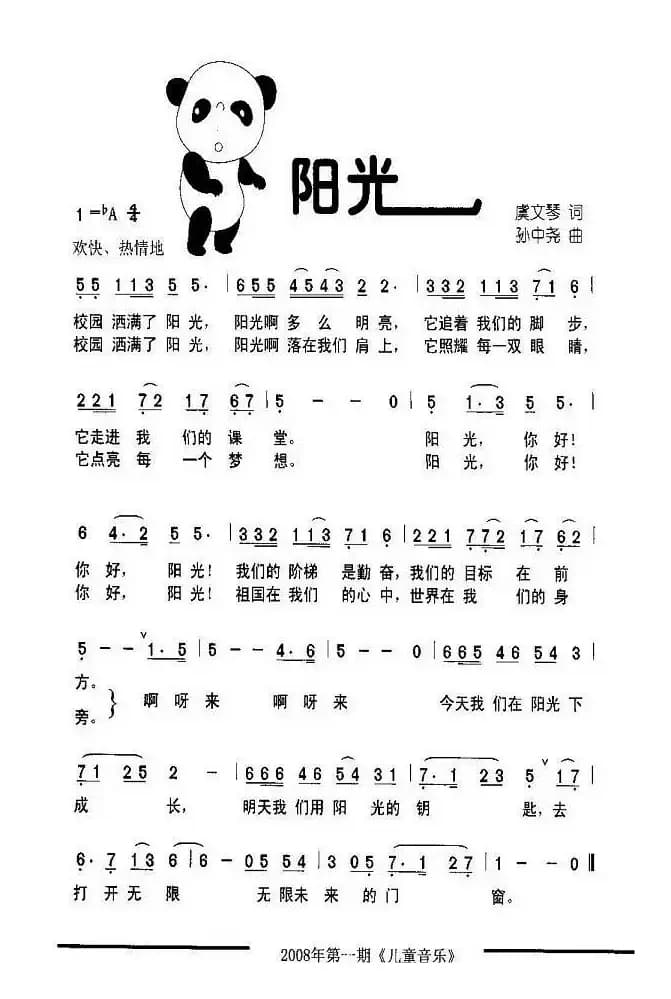 阳光
1=♭A 4/4
虞文琴 词
欢快、热情地
孙中尧 曲
5 5 1 1 3 5 5· | 6 5 5 4 5 4 3 2 2· | 3 3 2 1 1 3 7 1 6 |
校园 洒满了 阳 光， 阳光啊 多 么 明 亮， 它追着 我们的 脚 步，
校园 洒满了 阳 光， 阳光啊 落在我们 肩 上， 它照耀 每一双 眼 睛，
2 2 1 7 2 1 7 6 7 | 5 - - 0 | 5 1·3 5 5· |
它走进 我 们的 课 堂。 阳 光， 你 好！
它点亮 每 一个 梦 想。 阳 光， 你 好！
6 4·2 5 5· | 3 3 2 1 1 3 7 1 6 | 2 2 1 7 7 2 1 7 6 2 |
你 好， 阳 光！ 我们的 阶梯 是勤 奋，我们的 目标 在 前
你 好， 阳 光！ 祖国在 我们 的心 中，世界在 我 们的 身
5 - - ∨ 1·5 | 5 - - 4·6 | 5 - - 0 | 6 6 5 4 6 5 4 3 |
方。
旁。} 啊 呀 来 啊 呀 来 今天我 们在 阳光 下
7 1 2 5 2 - | 6 6 6 4 6 5 4 3 1 | 7·1 2 3 5 ∨ 1 7 |
成 长， 明天我 们用 阳 光的 钥 匙，去
6·7 1 3 6 | 6 - 0 5 5 4 | 3 0 5 7·1 2 7 | 1 - - 0 ‖
打 开 无 限 无 限未 来 的 门 窗。
2008年第一期《儿童音乐》